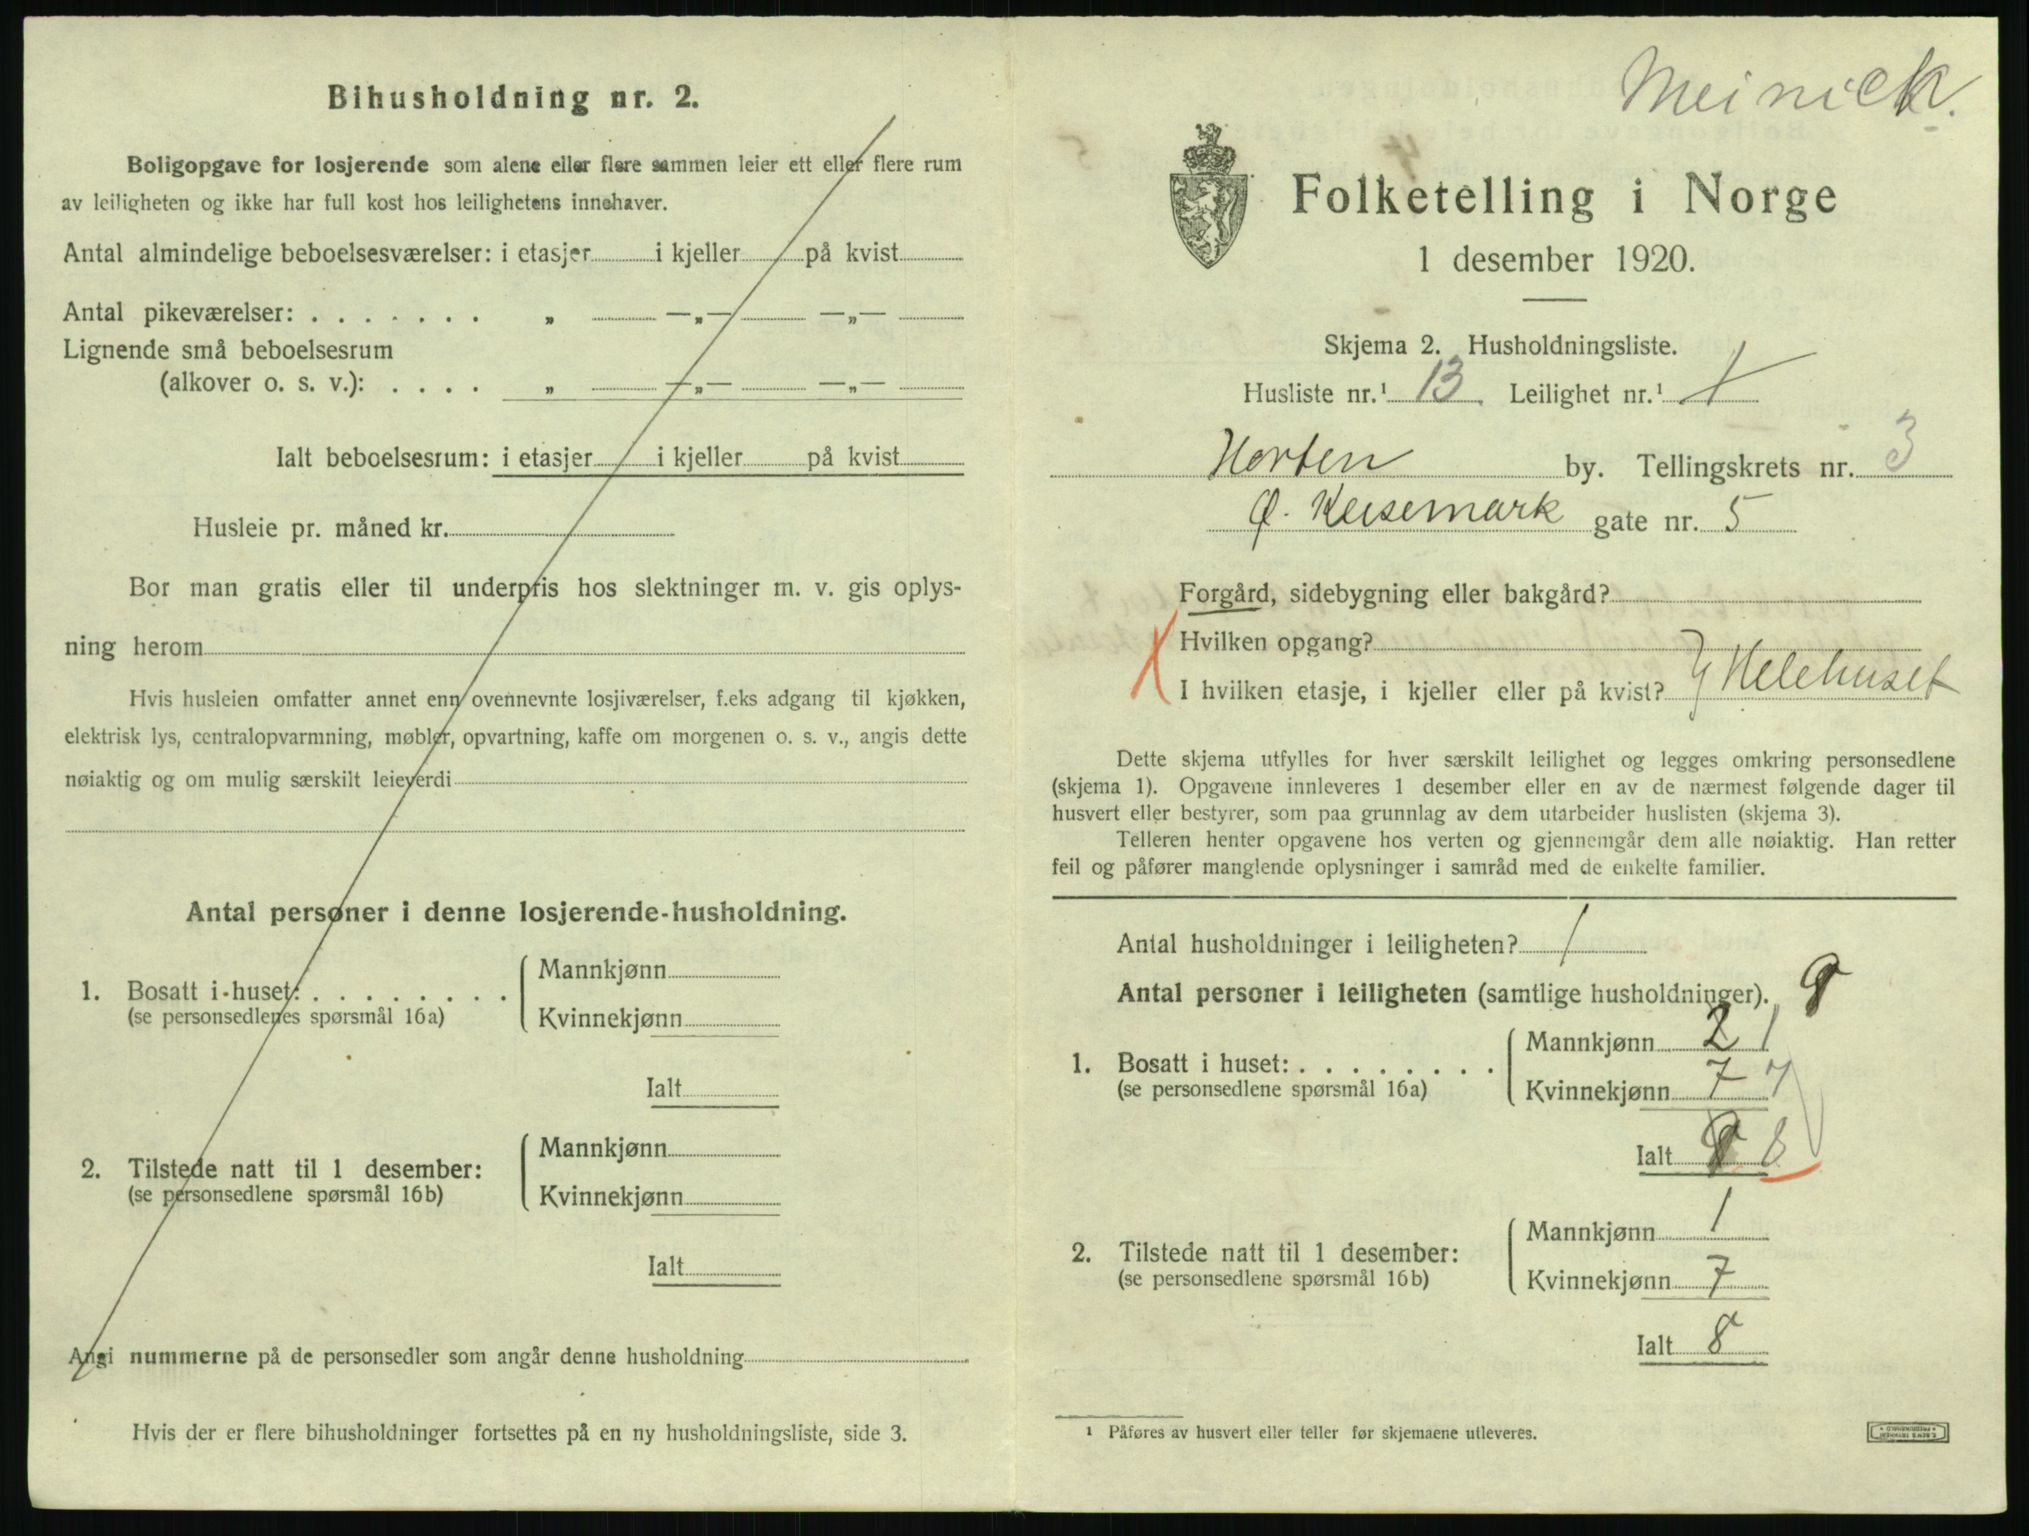 Bihusholdning nr. 2.
Boligopgave for losjerende som alene eller flere sammen leier ett eller flere rum
av leiligheten og ikke har full kost hos leilighetens innehaver.
Antal almindelige beboelsesværelser: i etasjer i kjeller på kvist
Antal pikeværelser: . . . . . . . „ —„— —„—
Lignende små beboelsesrum
(alkover o. s. v.): . . . . „ —„— —„—
Ialt beboelsesrum: i etasjer i kjeller på kvist
Husleie pr. måned kr.
Bor man gratis eller til underpris hos slektninger m. v. gis oplys-
ning herom
Hvis husleien omfatter annet enn ovennevnte losjiværelser, f.eks adgang til kjøkken,
elektrisk lys, centralopvarmning, møbler, opvartning, kaffe om morgenen o. s. v., angis dette
nøiaktig og om mulig særskilt leieverdi
Antal personer i denne losjerende-husholdning.
1. Bosatt i huset: . . . . . . . .
(se personsedlenes spørsmål 16a)
Mannkjønn
Kvinnekjønn
Ialt
2. Tilstede natt til 1 desember:
(se personsedlene spørsmål 16b)
Mannkjønn
Kvinnekjønn
Ialt
Angi nummerne på de personsedler som angår denne husholdning
Hvis der er flere bihusholdninger fortsettes på en ny husholdningsliste, side 3.
Meinick.
Folketelling i Norge
1 desember 1920.
Skjema 2. Husholdningsliste.
Husliste nr.¹ 13. Leilighet nr.¹ 1
Horten by. Tellingskrets nr. 3
Ø. Keisemark gate nr. 5
Forgård, sidebygning eller bakgård?
Hvilken opgang?
I hvilken etasje, i kjeller eller på kvist? Helehuset
Dette skjema utfylles for hver særskilt leilighet og legges omkring personsedlene
(skjema 1). Opgavene innleveres 1 desember eller en av de nærmest følgende dager til
husvert eller bestyrer, som paa grunnlag av dem utarbeider huslisten (skjema 3).
Telleren henter opgavene hos verten og gjennemgår dem alle nøiaktig. Han retter
feil og påfører manglende oplysninger i samråd med de enkelte familier.
Antal husholdninger i leiligheten? 1
Antal personer i leiligheten (samtlige husholdninger). 9
1. Bosatt i huset: . . . . . . . .
(se personsedlene spørsmål 16a)
Mannkjønn 2 1
Kvinnekjønn 7 7
Ialt 9 8
2. Tilstede natt til 1 desember:
(se personsedlene spørsmål 16b)
Mannkjønn 1
Kvinnekjønn 7
Ialt 8
¹ Påføres av husvert eller teller før skjemaene utleveres.